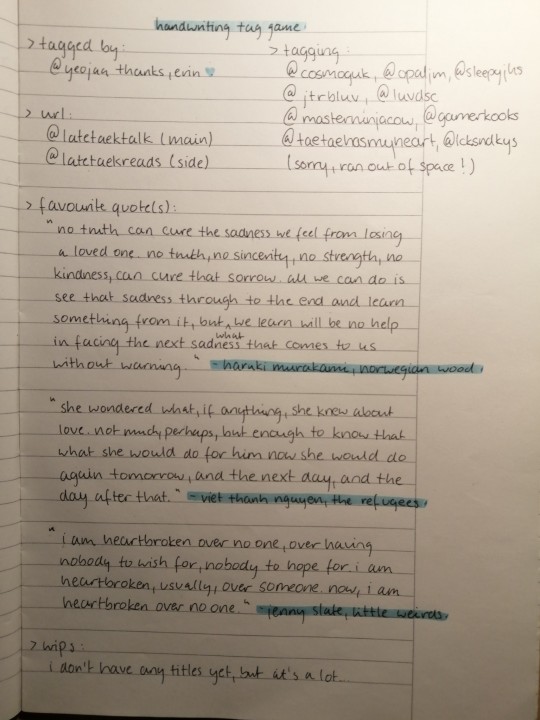 handwriting tag game
> tagged by:
@yeojaa thanks, erin
> tagging:
@cosmoguk, @opaljm, @sleepyjhs
@jtrbluv, @luvdsc
@masterninjacow, @gamerkooks
@taetaehasmyheart, @lcksndkys
(sorry, ran out of space!)
> url:
@latetaektalk (main)
@latetaekreads (side)
> favourite quote(s):
"no truth can cure the sadness we feel from losing
a loved one. no truth, no sincerity, no strength, no
kindness, can cure that sorrow. all we can do is
see that sadness through to the end and learn
something from it, but what we learn will be no help
in facing the next sadness that comes to us
without warning." - haruki murakami, norwegian wood.
"she wondered what, if anything, she knew about
love. not much, perhaps, but enough to know that
what she would do for him now she would do
again tomorrow, and the next day, and the
day after that." - viet thanh nguyen, the refugees.
"i am heartbroken over no one, over having
nobody to wish for, nobody to hope for. i am
heartbroken, usually, over someone. now, i am
heartbroken over no one." - jenny slate, little weirds.
> wips:
i don't have any titles yet, but it's a lot...